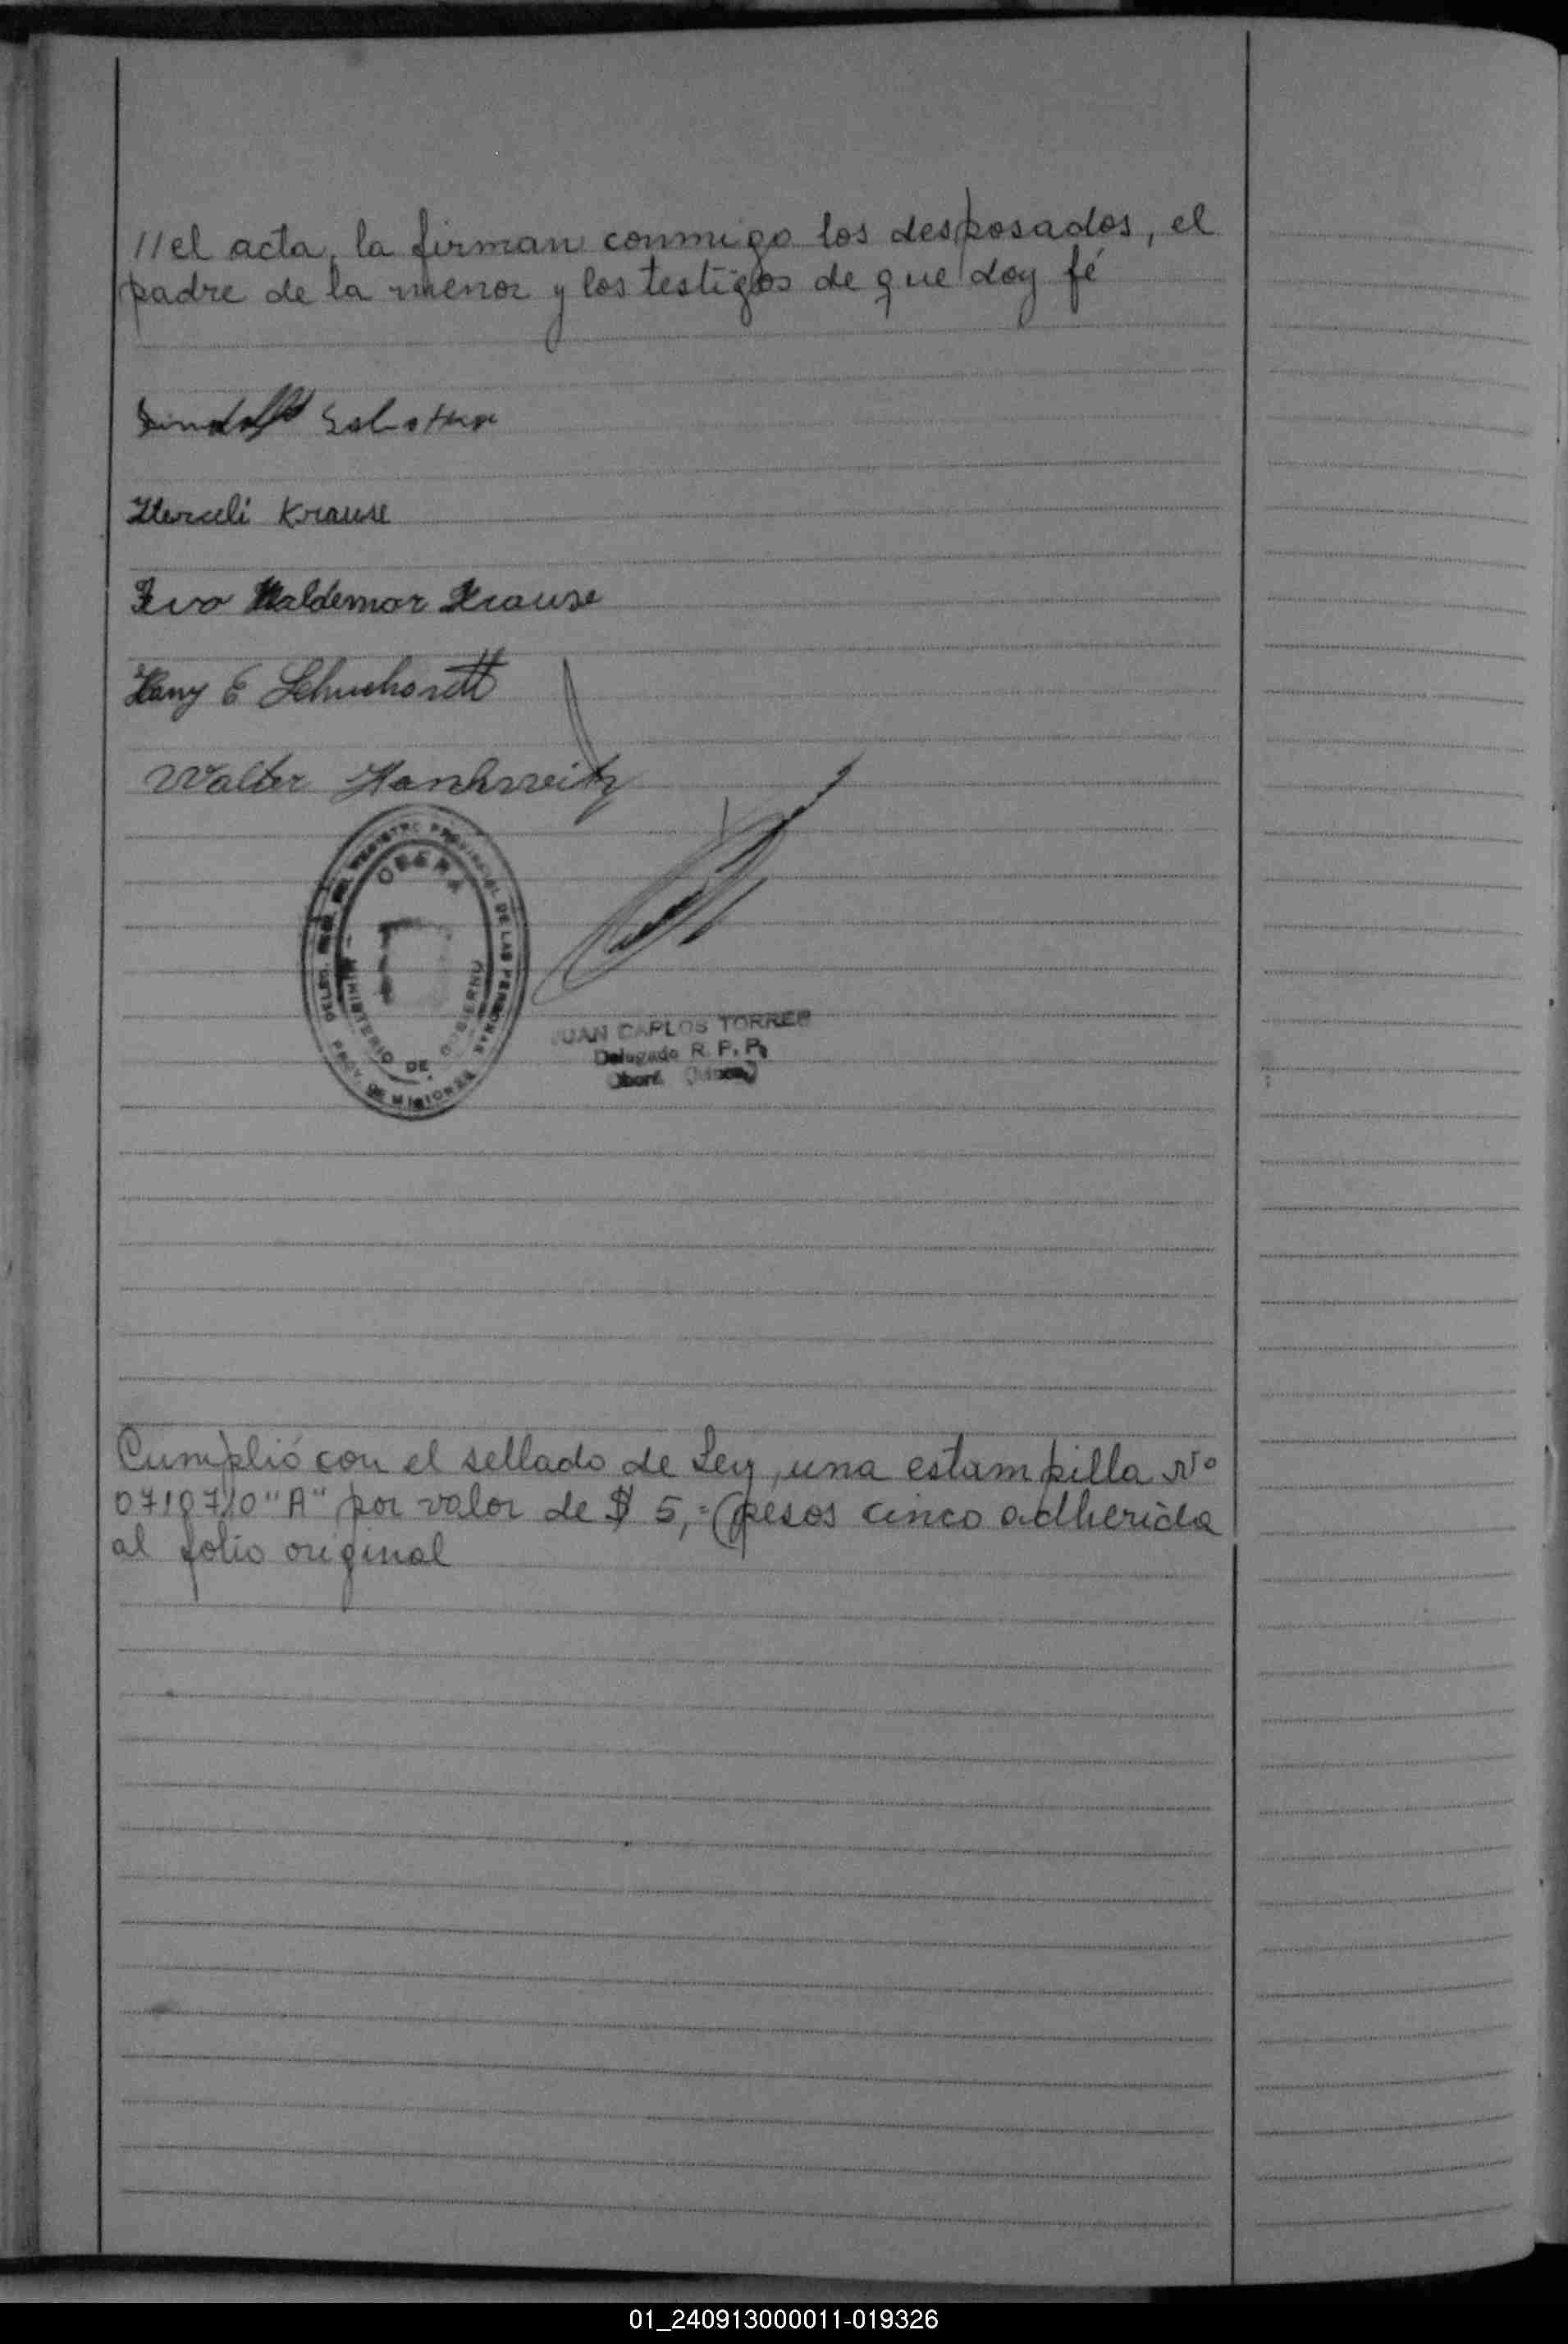 //el acta, la firman conmigo los desposados, el
padre de la menor y los testigos de que doy fé
Krause
Ivo Waldemar Krause
Hany E Schuchardt
Walter
DEL REGISTRO PROVINCIAL DE LAS PERSONAS
OBERA
MINISTERIO DE GOBIERNO
PROV. DE MISIONES
JUAN CARLOS TORRES
Delegado R. P. P.
Oberá
Cumplió con el sellado de Ley, una estampilla Nº
"A" por valor de $ 5,= (pesos cinco adherida
al folio original
01_240913000011-019326